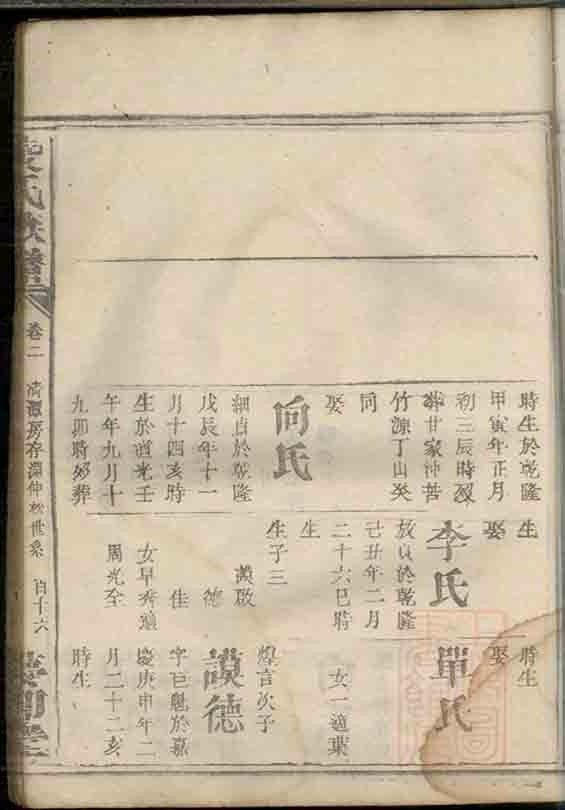 時生於乾隆
甲寅年正月
初三辰時歿
葬廿家冲苦
竹源丁山癸
同
娶
向氏
細貞於乾隆
戊辰年十一
月十四亥時
生於道光壬
午年九月十
九卯時歿葬
生
娶
李氏
放貞於乾隆
己丑年二月
二十六巳時
生
生子三
謨啟
德
佳
女早秀適
周光全
時生
娶
單氏
女一適葉
煌言次子
謨德
字巨魁於嘉
慶庚申年二
月二十二亥
時生
氏族譜
卷二
清源房存淵仲於世系
百十六